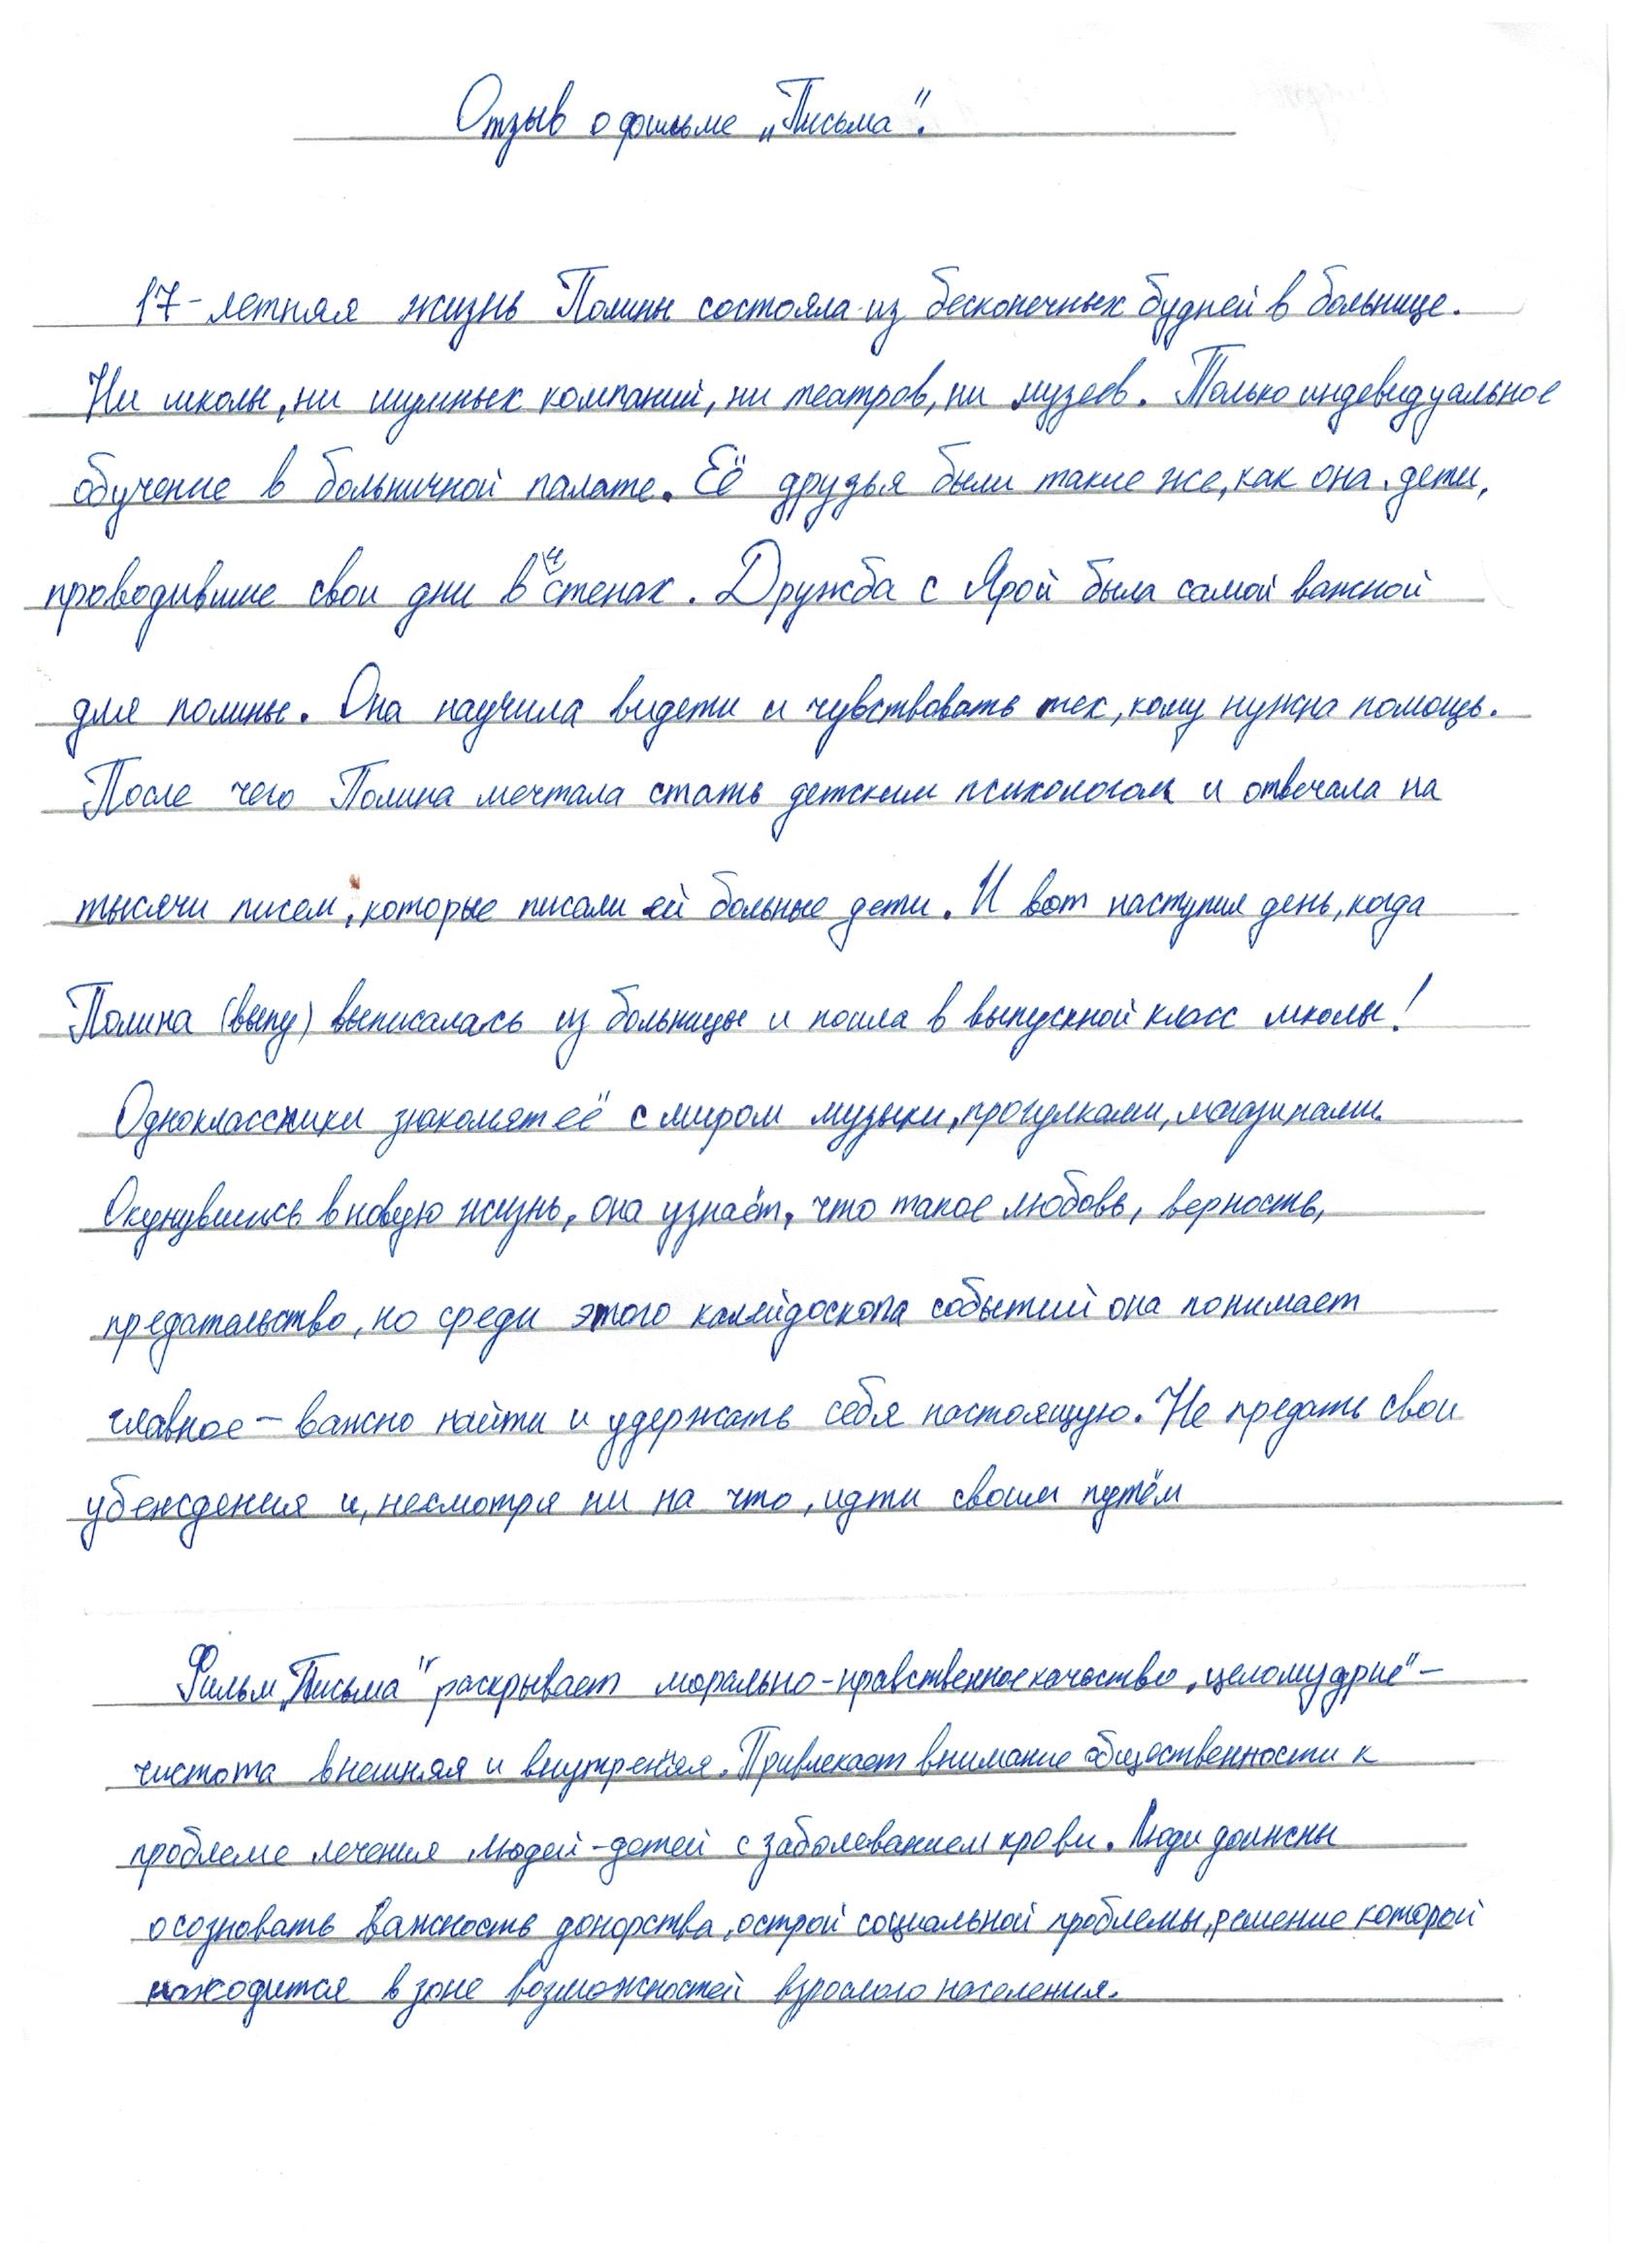 Отзыв о фильме „Письма".
17-летняя жизнь Полины состояла из бесконечных будней в больнице.
Ни школы, ни шумных компаний, ни театров, ни музеев. Только индевидуальное
обучение в больничной палате. Её друзья были такие же, как она, дети,
проводившие свои дни в 4 стенах. Дружба с Ярой была самой важной
для полины. Она научила видети и чувствовать тех, кому нужна помощь.
После чего Полина мечтала стать детским психологом и отвечала на
тысячи писем, которые писали ей больные дети. И вот наступил день, когда
Полина (выпу) выписалась из больницы и пошла в выпускной класс школы!
Одноклассники знакомят её с миром музыки, прогулками, магазинами.
Окунувшись в новую жизнь, она узнаёт, что такое любовь, верность,
предательство, но среди этого калейдоскопа событий она понимает
главное - важно найти и удержать себя настоящую. Не предать свои
убеждения и, несмотря ни на что, идти своим путём
Фильм „Письма" раскрывает морально-нравственное качество „целомудрие" -
чистота внешняя и внутреняя. Привлекает внимание общественности к
проблеме лечения людей-детей с заболеванием крови. Люди должны
осозновать важность донорства, острой социальной проблемы, решение которой
находится в зоне возможностей взрослого населения.